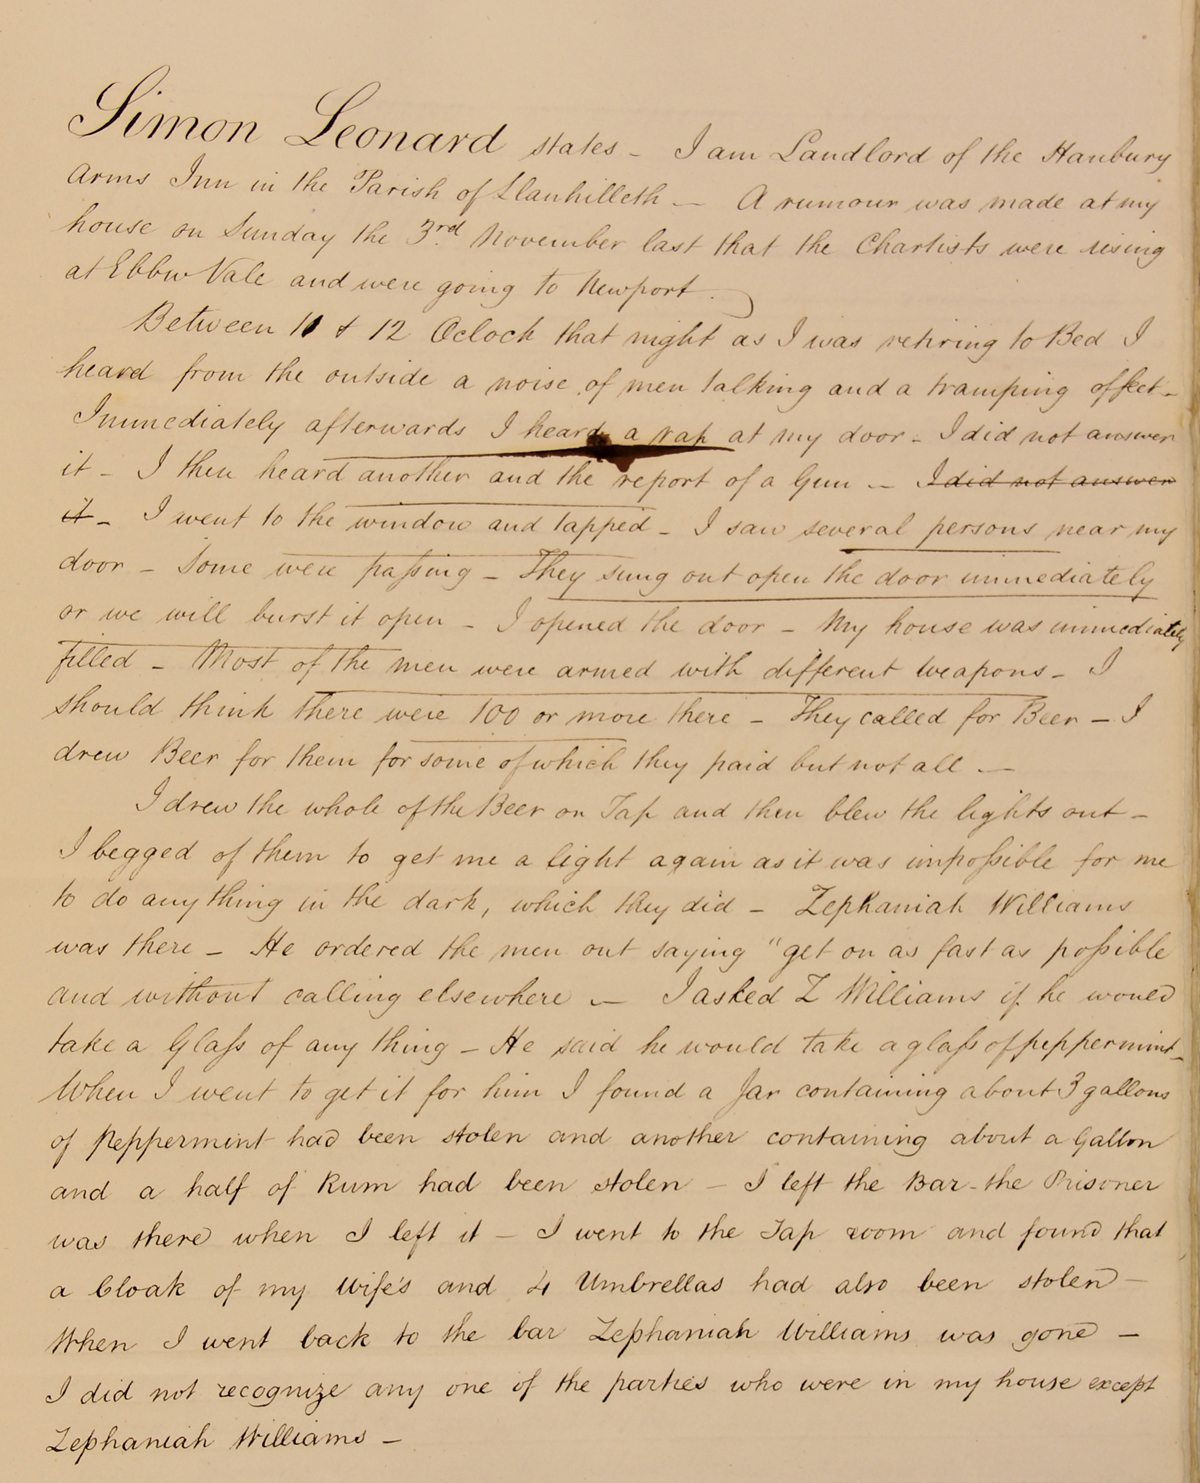 Simon Leonard states - I am Landlord of the Hanbury
Arms Inn in the Parish of Llanhilleth - A rumour was made at my
house on Sunday the 3rd November last that the Chartists were rising
at Ebbw Vale and were going to Newport.
Between 11 & 12 Oclock that night as I was retiring to Bed I
heard from the outside a noise of men talking and a tramping of feet -
Immediately afterwards I heard a rap at my door - I did not answer
it - I then heard another and the report of a Gun - I did not answer
it - I went to the window and tapped - I saw several persons near my
door - Some were passing - They sung out open the door immediately
or we will burst it open - I opened the door - My house was immediately
filled - Most of the men were armed with different weapons - I
should think there were 100 or more there - They called for Beer - I
drew Beer for them for some of which they paid but not all -
I drew the whole of the Beer on Tap and then blew the lights out -
I begged of them to get me a light again as it was impossible for me
to do any thing in the dark, which they did - Zephaniah Williams
was there - He ordered the men out saying "get on as fast as possible
and without calling elsewhere - I asked Z Williams if he would
take a Glass of any thing - He said he would take a glass of peppermint -
When I went to get it for him I found a Jar containing about 3 gallons
of Peppermint had been stolen and another containing about a Gallon
and a half of Rum had been stolen - I left the Bar - the Prisoner
was there when I left it - I went to the Tap room and found that
a Cloak of my Wife's and 4 Umbrellas had also been stolen -
When I went back to the bar Zephaniah Williams was gone -
I did not recognize any one of the parties who were in my house except
Zephaniah Williams -